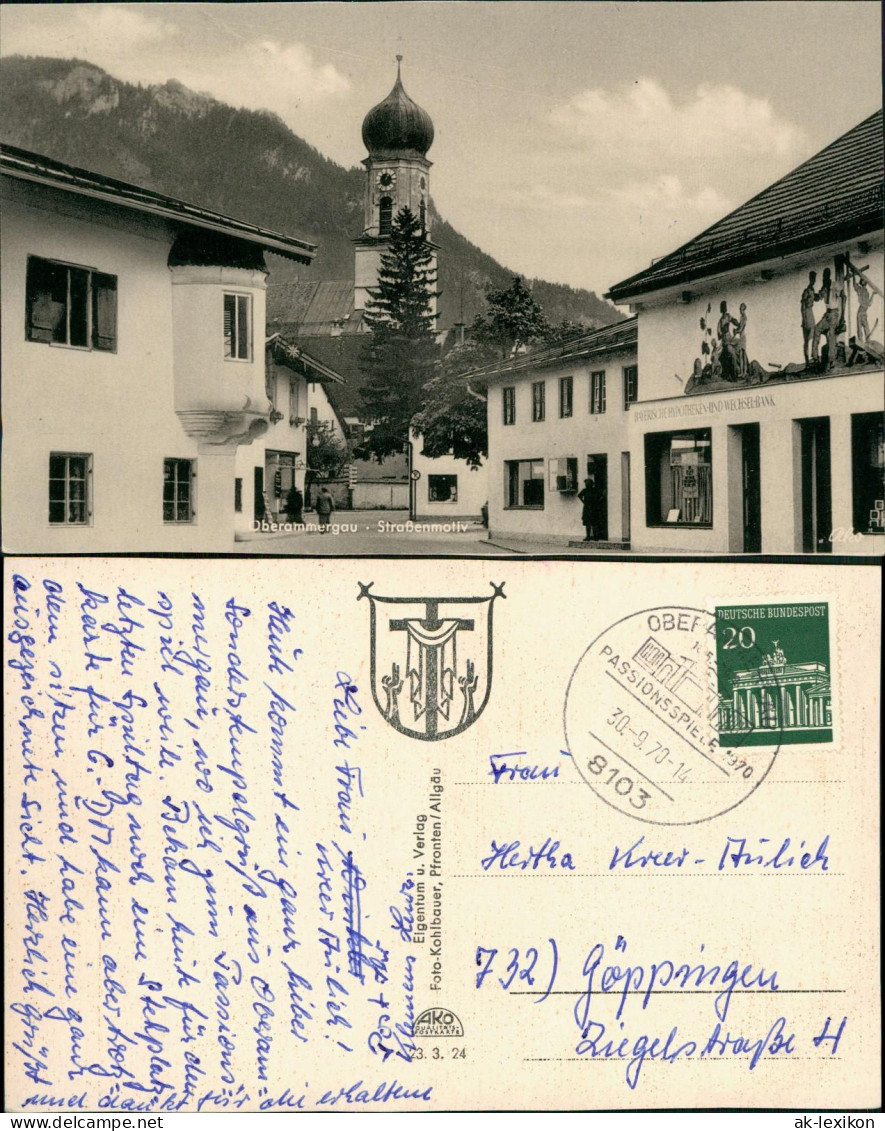 BAYERISCHE HYPOTHEKEN- UND WECHSEL-BANK
Oberammergau · Straßenmotiv
Liebe Frau
Kreer Aulich!
Heute kommt ein ganz lieber
Sonderstempelgruß aus Oberam=
mergau, wo ich zum Passions=
spiel weile. Bekam heute für den
letzten Spieltag noch eine Stehplatz=
karte für 6.- DM kann aber trotz=
dem sitzen und habe eine ganz
ausgezeichnete Sicht. Herzlich grüßt
und dankt für die erhaltene
Eigentum u. Verlag
Foto-Kohlbauer, Pfronten/Allgäu
AKO
QUALITÄTS-
POSTKARTE
23. 3. 24
DEUTSCHE BUNDESPOST
20
PASSIONSSPIELE 1970
30.-9.70-14
8103
Frau
Hertha Kreer-Aulich
732) Göppingen
Ziegelstraße 4
www.ansichtskarten-lexikon.de
ak-lexikon.com